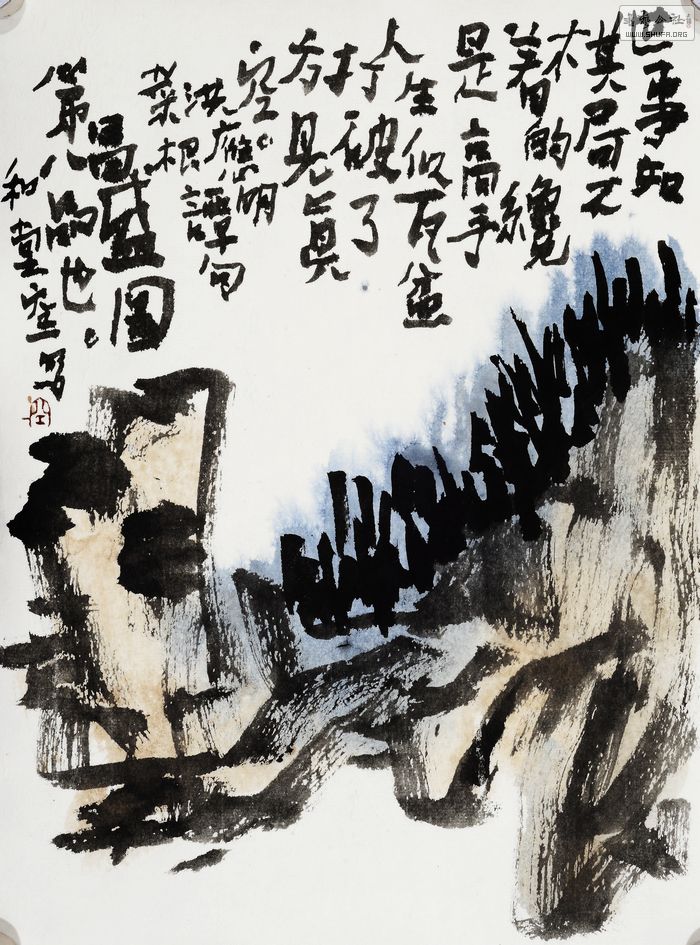 世事如
棋局不
着的纔
是高手
人生似瓦盆
打破了
方見真
空。
洪應明
菜根譚句
昌盛圖
第八品也。
和堂空寫
WWW.SHUFA.ORG